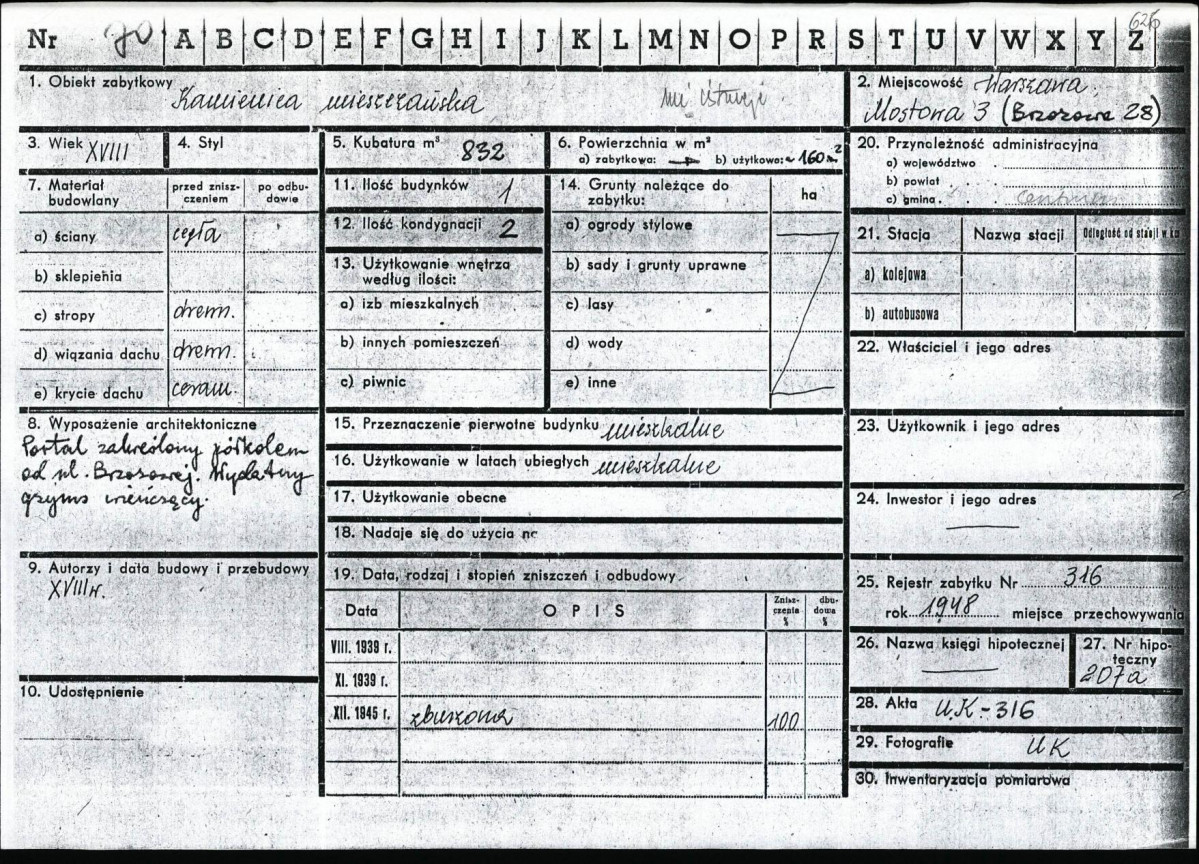 626
Nr 70 A B C D E F G H I J K L M N O P R S T U V W X Y Z
1. Obiekt zabytkowy
Kamienica mieszczańska
nie istnieje
2. Miejscowość Warszawa
Mostowa 3 (Brzozowa 28)
3. Wiek XVIII
4. Styl
5. Kubatura m³ 832
6. Powierzchnia w m²
a) zabytkowa: — b) użytkowa: ~160 m²
7. Materiał budowlany
przed znisz-
czeniem
po odbu-
dowie
a) ściany cegła
b) sklepienia
c) stropy drewn.
d) wiązania dachu drewn.
e) krycie dachu ceram.
8. Wyposażenie architektoniczne
Portal zakreślony półkolem
od ul. Brzozowej. Wydatny
gzyms wieńczący.
9. Autorzy i data budowy i przebudowy
XVIII w.
10. Udostępnienie
11. Ilość budynków 1
12. Ilość kondygnacji 2
13. Użytkowanie wnętrza
według ilości:
a) izb mieszkalnych
b) innych pomieszczeń
c) piwnic
14. Grunty należące do
zabytku:
ha
a) ogrody stylowe
b) sady i grunty uprawne
c) lasy
d) wody
e) inne
15. Przeznaczenie pierwotne budynku mieszkalne
16. Użytkowanie w latach ubiegłych mieszkalne
17. Użytkowanie obecne
18. Nadaje się do użycia na
19. Data, rodzaj i stopień zniszczeń i odbudowy
Data
OPIS
Znisz-
czenia
%
dbu-
dowa
%
VIII. 1939 r.
XI. 1939 r.
XII. 1945 r. zburzona 100
20. Przynależność administracyjna
a) województwo
b) powiat
c) gmina
21. Stacja
Nazwa stacji
Odległość od stacji w km
a) kolejowa
b) autobusowa
22. Właściciel i jego adres
23. Użytkownik i jego adres
24. Inwestor i jego adres
25. Rejestr zabytku Nr 316
rok 1948 miejsce przechowywania
26. Nazwa księgi hipotecznej
27. Nr hipo-
teczny
207a
28. Akta UK-316
29. Fotografie UK
30. Inwentaryzacja pomiarowa